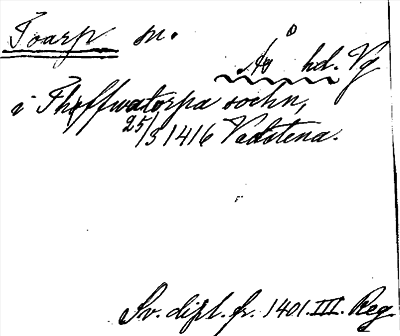 Toarp m.
Ås hd. Vg
i Thoffwatorpa sochn,
25/3 1416 Vadstena.
Sv. dipl. fr. 1401. III. Reg.